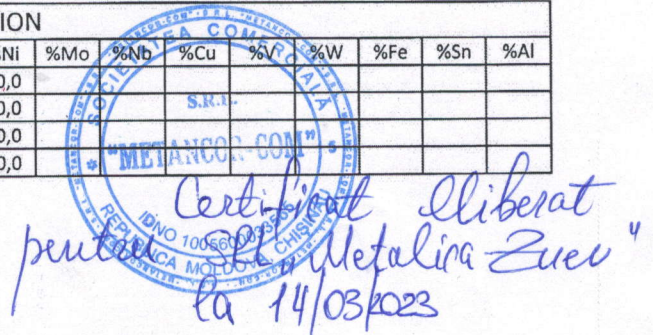 ION
%Ni %Mo %Nb %Cu %V %W %Fe %Sn %Al
0,0
0,0
0,0
0,0
SOCIETATEA COMERCIALĂ
S.R.L.
"METANCOR-COM"
IDNO 1005600033506
REPUBLICA MOLDOVA CHIŞINĂU
Certificat eliberat
pentru SRL „Metalica-Zuev"
la 14/03/2023